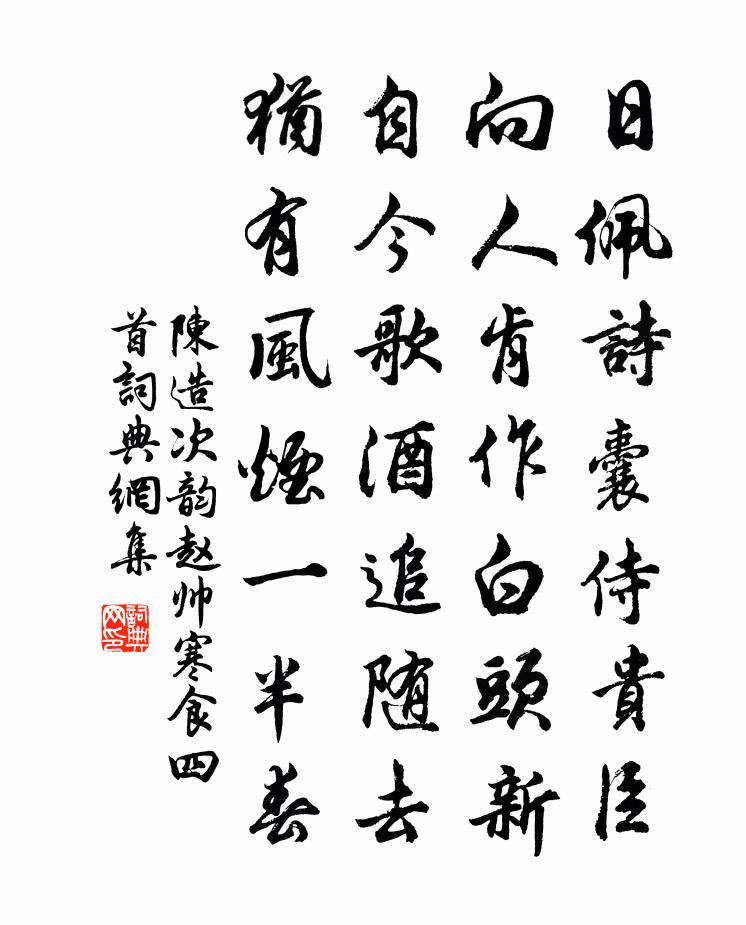 日佩詩囊侍貴臣
向人肯作白頭新
自今歌酒追随去
猶有風煙一半春
陳造次韵赵帅寒食四
首詞典網集
詞典网印